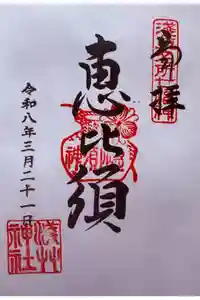 奉拝
恵比須
令和八年三月二十一日
浅草
神社